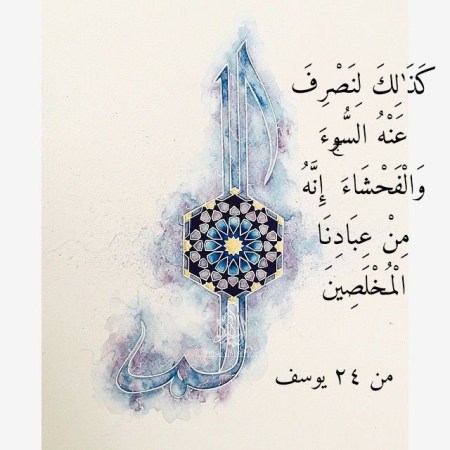 كَذَٰلِكَ لِنَصْرِفَ
عَنْهُ السُّوءَ
وَالْفَحْشَاءَ ۚ إِنَّهُ
مِنْ عِبَادِنَا
الْمُخْلَصِينَ
من ٢٤ يوسف